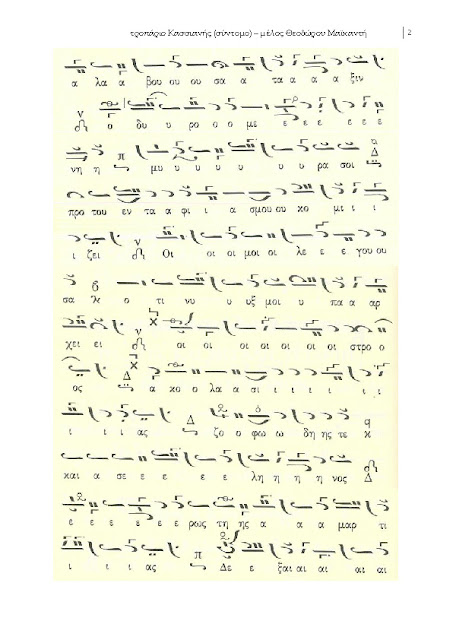 τροπάριο Κασσιανής (σύντομο) – μέλος Θεοδώρου Μαϊκαντή 2
α λα α βου ου ου σα α τα α α α ξιν
ν ο δυ υ ρο ο ο με ε ε ε ε ε ε
νη η π μυ υ υ υ υ υ υ ρα σοι Δ
προ του εν τα α φι ι α σμου ου κο μι ι ι
ι ζει ν Οι οι οι μοι οι λε ε ε γου ου
σα δ λ ο τι νυ υ υξ μοι υ πα α αρ
χει ει ν οι οι οι οι οι οι οι στρο ο
ος Δ α κο ο λα α σι ι ι ι ι ι
ι ι ι ας Δ ζο ο φω ω δη ης τε κ
και α σε ε ε ε ε λη η η η νος Δ
ε ε ε ε ε ε ρως τη ης α α α μαρ τι
ι ι ι ας π Δε ε ξαι αι αι αι αι